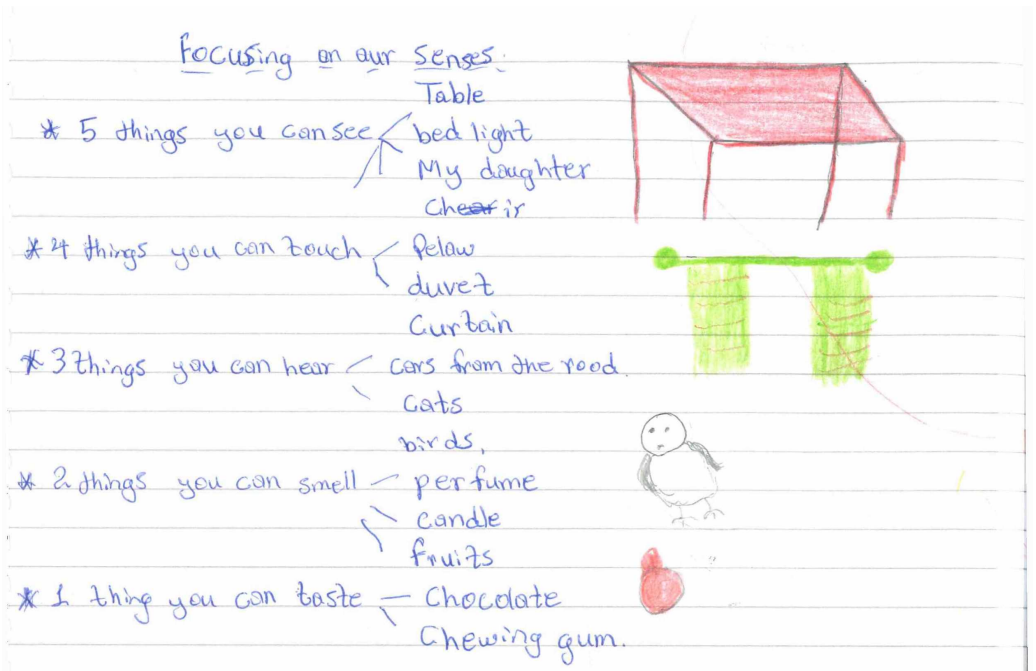 Focusing on our senses.
Table
* 5 things you can see bed light
My daughter
Cheir
* 4 things you can touch Pelow
duvet
Curtain
* 3 things you can hear cars from the rood.
Cats
birds,
* 2 things you can smell perfume
candle
fruits
* 1 thing you can taste Chocolate
Chewing gum.